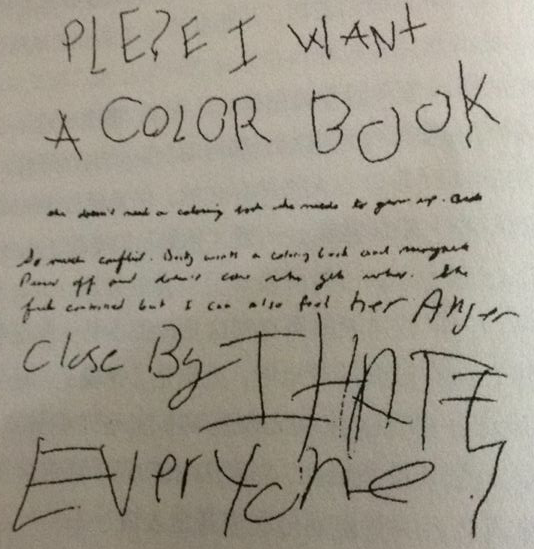 PLEZE I WANT
A COLOR BOOK
she doesn't need a coloring book she needs to grow up.
So much conflict. wants a coloring book and
off and doesn't care who gets
feel but I can also feel her Anger
Close By I HATE
Everyone